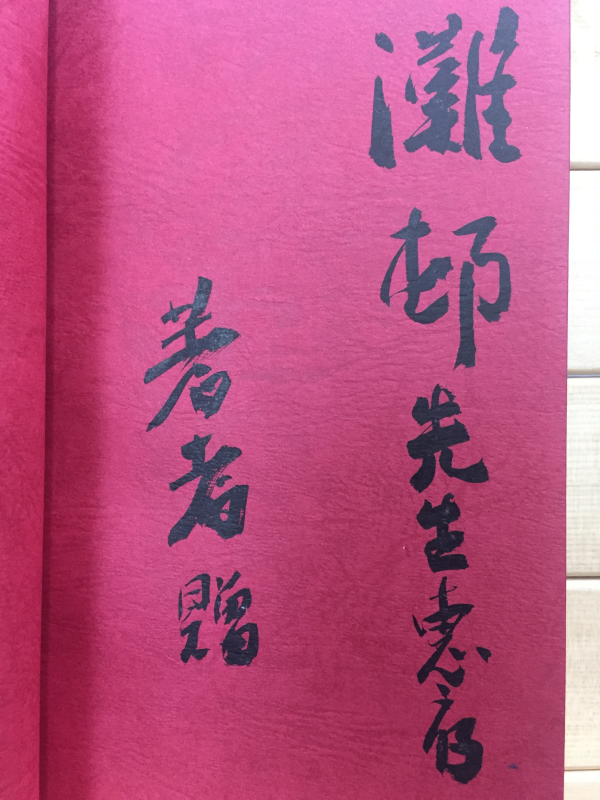 灘邨先生惠存
著者贈